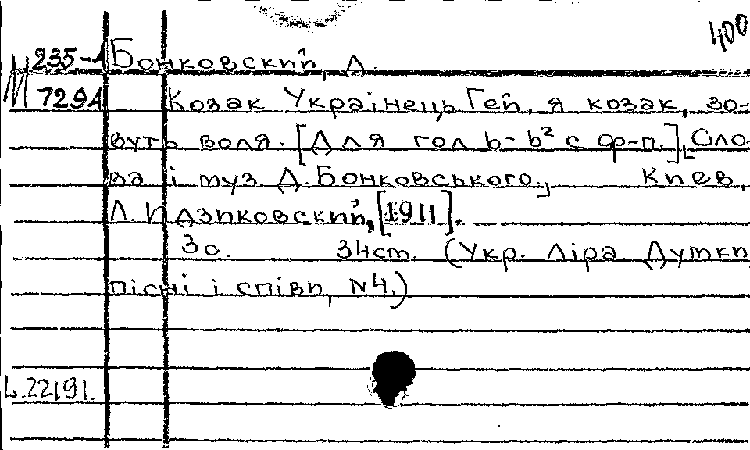 400
М 235-1 Бонковский, Д.
729А Козак Українець Гей, я козак, зо-
вуть воля. [Для гол b-b² с ф-п.] Сло
ва і муз Д. Бонковського. Киев,
Л. Идзиковский, [1911].
3с. 34cm. (Укр. Ліра Думки
пісні і співи, N4.)
L.22191.